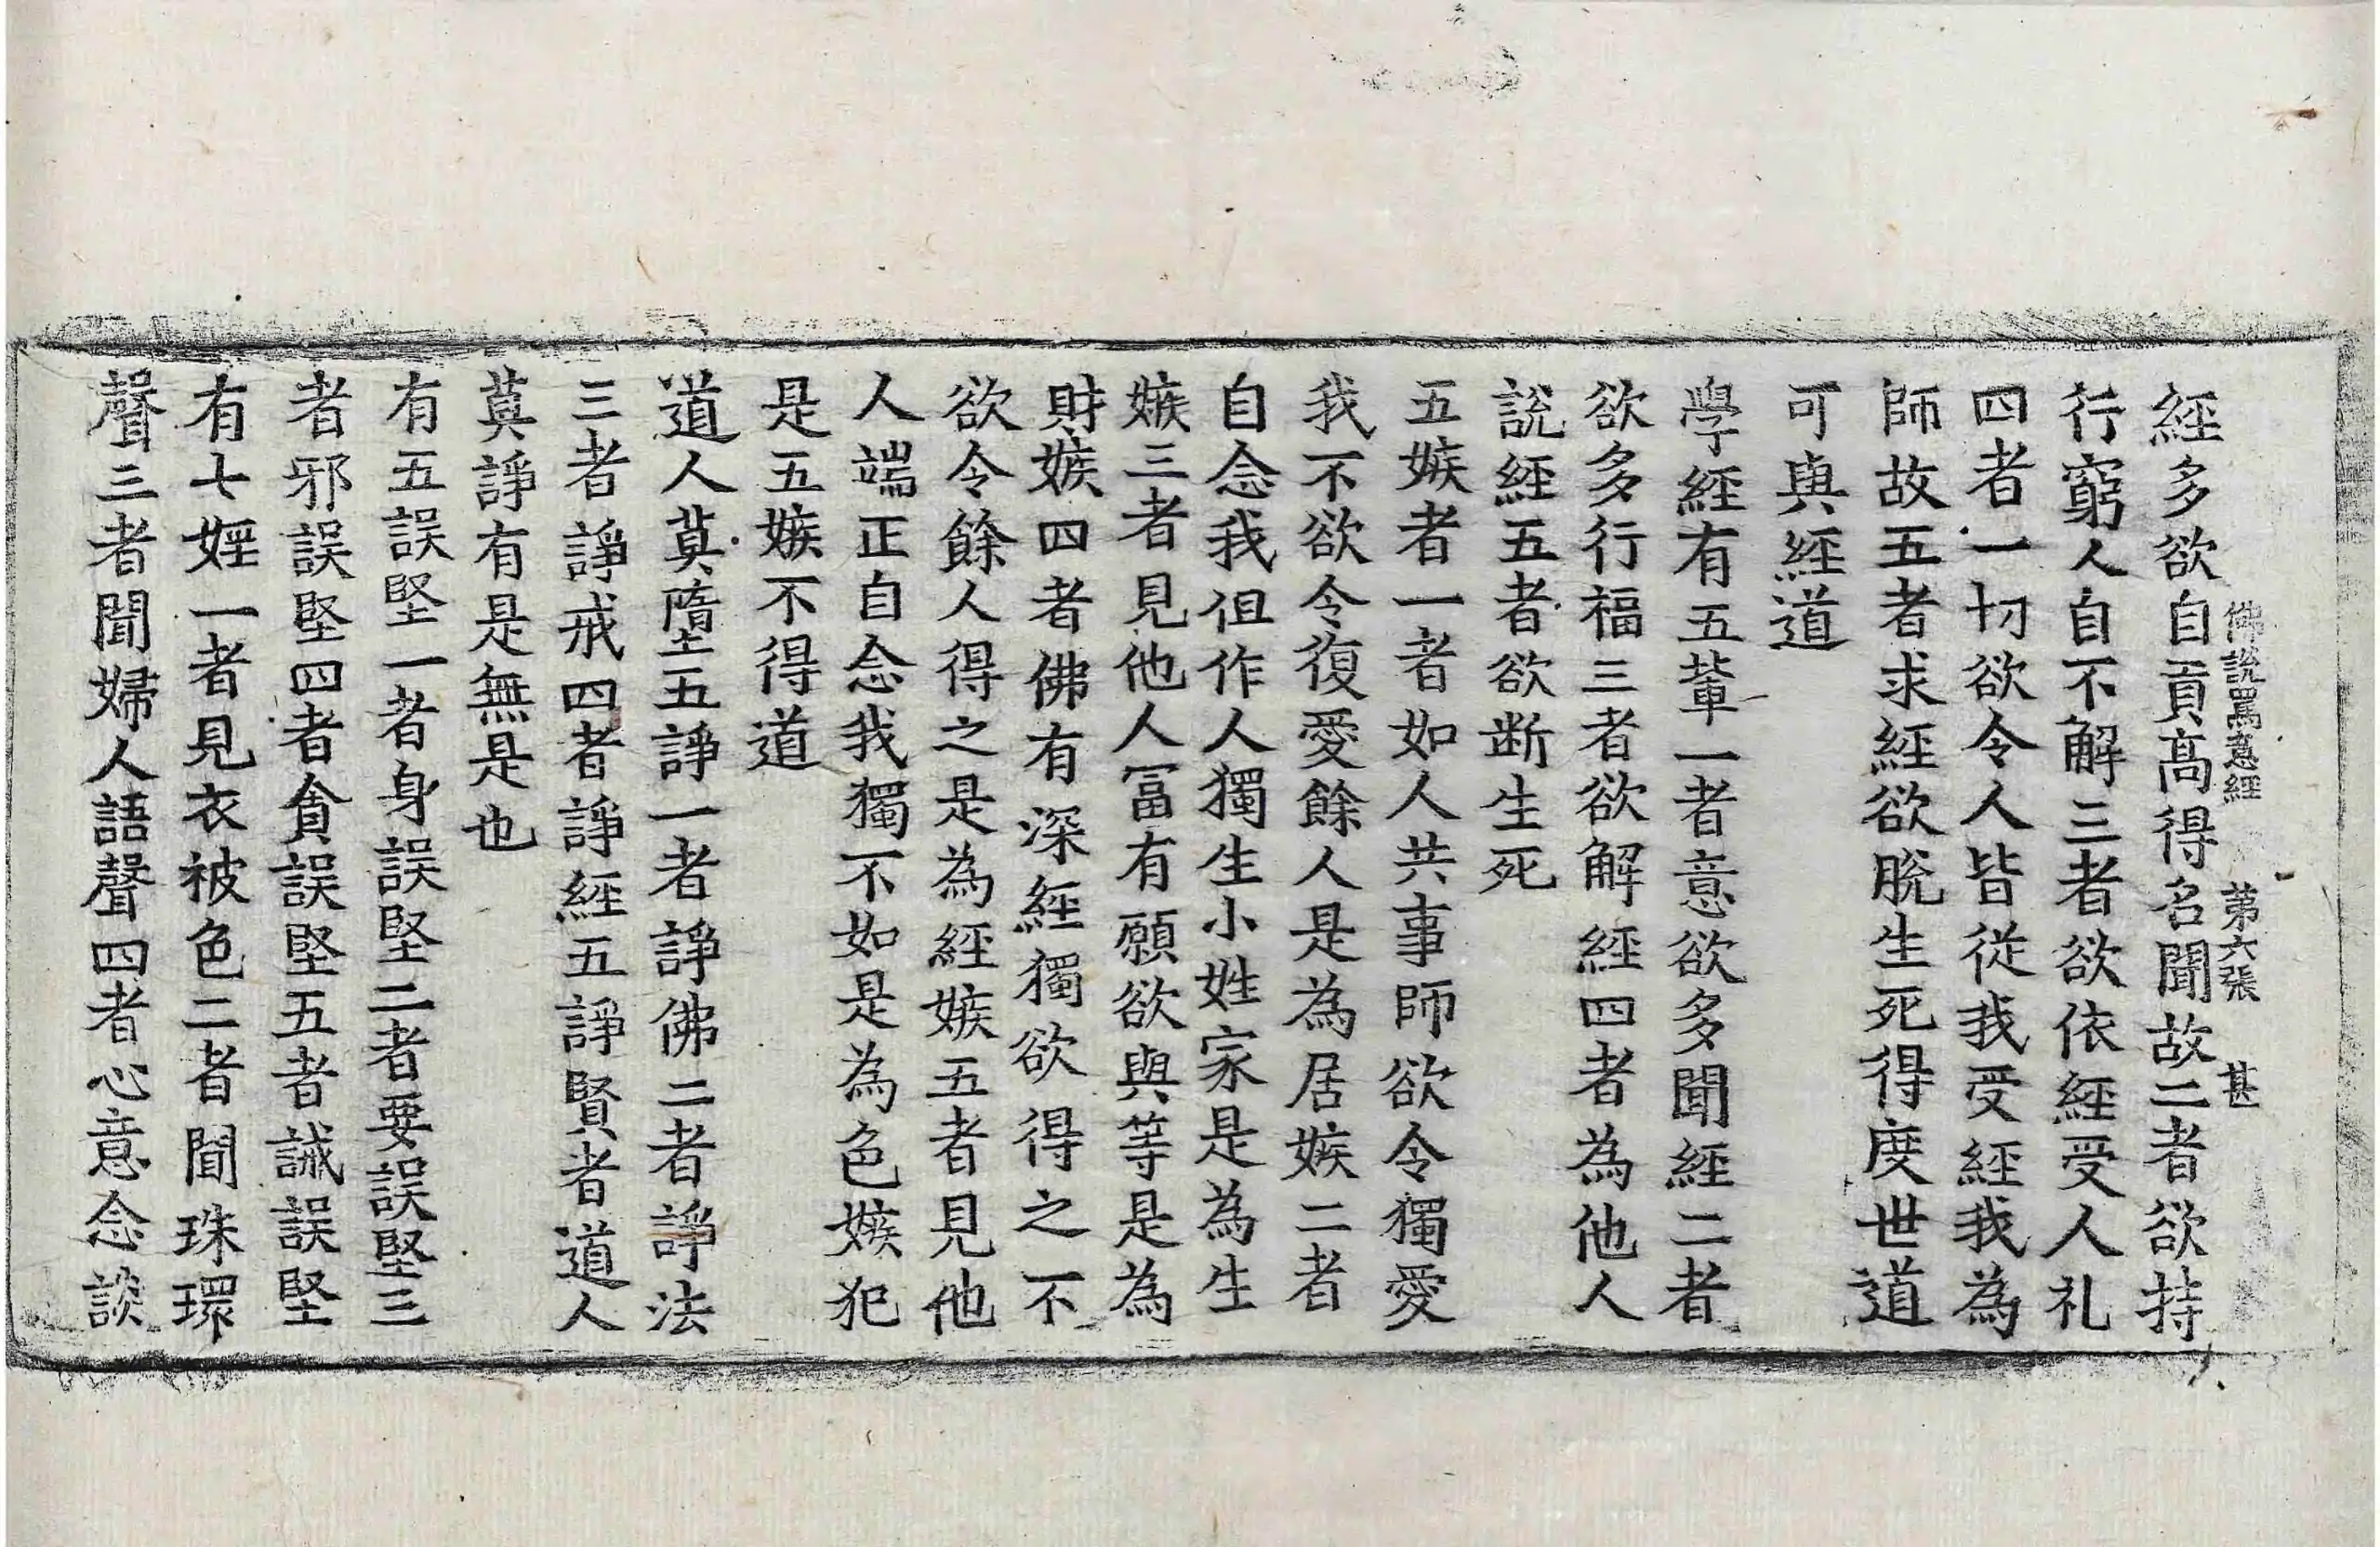 佛說罵意經　第六張　甚
經多欲自貢高得名聞故二者欲持
行窮人自不解三者欲依經受人礼
四者一切欲令人皆從我受經我為
師故五者求經欲脫生死得度世道
可與經道
學經有五輩一者意欲多聞經二者
欲多行福三者欲解經四者為他人
說經五者欲断生死
五嫉者一者如人共事師欲令獨愛
我不欲令復愛餘人是為居嫉二者
自念我伹作人獨生小姓家是為生
嫉三者見他人冨有願欲與等是為
財嫉四者佛有深經獨欲得之不
欲令餘人得之是為經嫉五者見他
人端正自念我獨不如是為色嫉犯
是五嫉不得道
道人莫墮五諍一者諍佛二者諍法
三者諍戒四者諍經五諍賢者道人
莫諍有是無是也
有五誤堅一者身誤堅二者要誤堅三
者邪誤堅四者貪誤堅五者誡誤堅
有七婬一者見衣被色二者聞珠環
聲三者聞婦人語聲四者心意念談